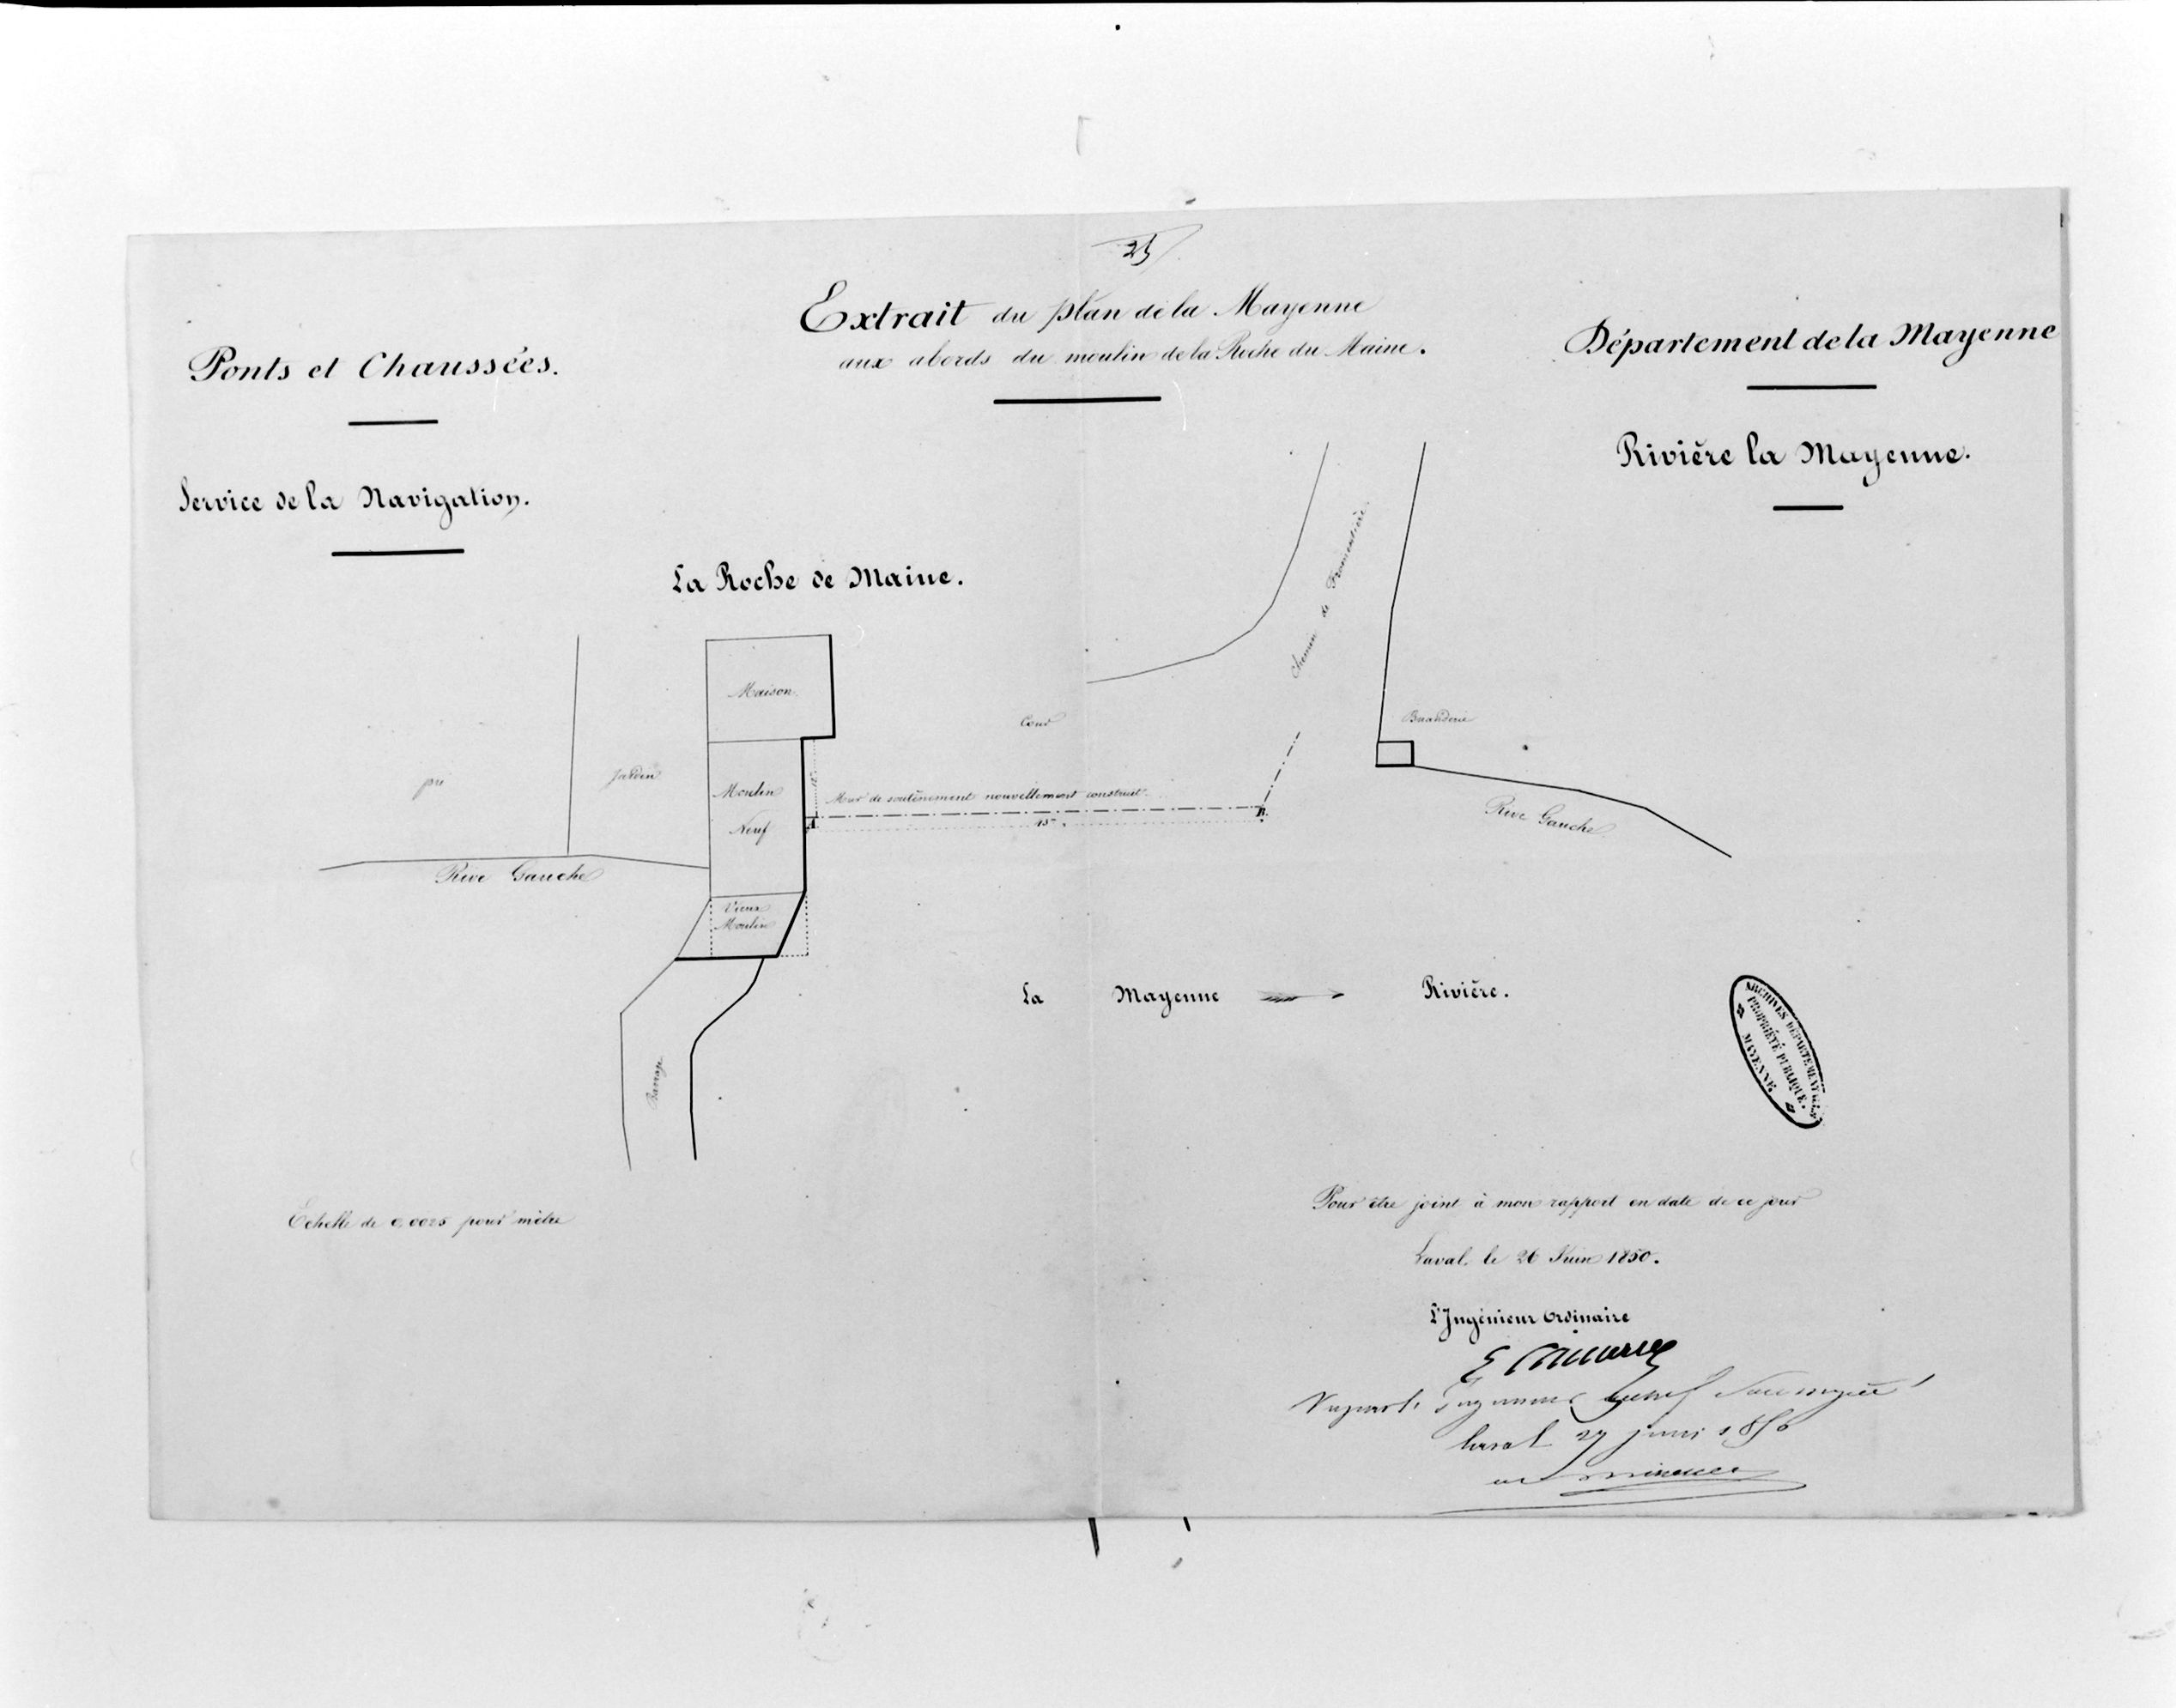 25
Extrait du plan de la Mayenne
aux abords du moulin de la Roche du Maine.
Ponts et Chaussées.
Département de la Mayenne
Service de la Navigation.
Rivière la Mayenne.
La Roche de Maine.
Chemin de Fromentière
Maison
Cour
Buanderie
pré
Jardin
Moulin
Neuf
Mur de soutènement nouvellement construit
A
B
45m
Rive Gauche
Rive Gauche
Vieux
Moulin
La Mayenne Rivière.
Barrage
ARCHIVES DÉPARTEMENTALES
PROPRIÉTÉ PUBLIQUE.
MAYENNE
Echelle de 0.0025 pour mètre
Pour être joint à mon rapport en date de ce jour
Laval, le 26 Juin 1850.
L'Ingénieur Ordinaire
Vu par l'Ingénieur en chef soussigné
Laval 27 juin 1850